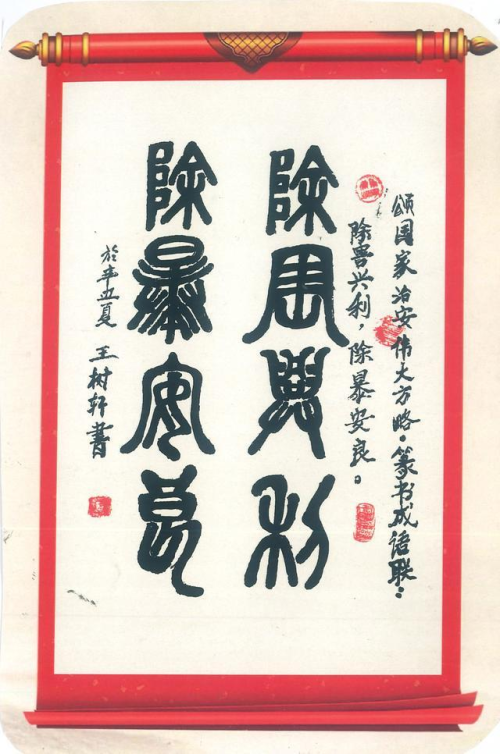 颂国家治安伟大方略。篆书成语联：
除害兴利，除暴安良。
除害興利
除暴安良
於辛丑夏 王树轩書